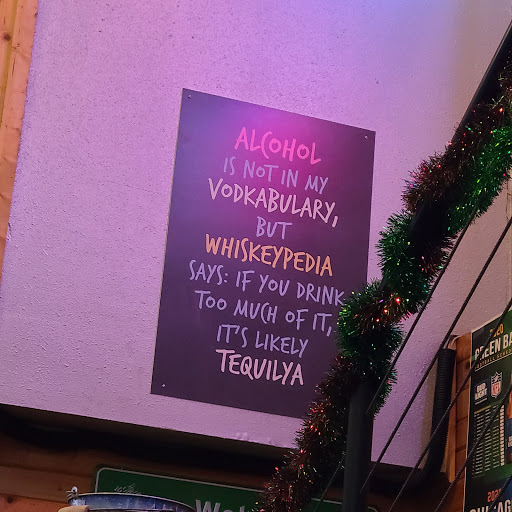 ALCOHOL
IS NOT IN MY
VODKABULARY,
BUT
WHISKEYPEDIA
SAYS: IF YOU DRINK
TOO MUCH OF IT,
IT'S LIKELY
TEQUILYA
GREEN BA
NFL